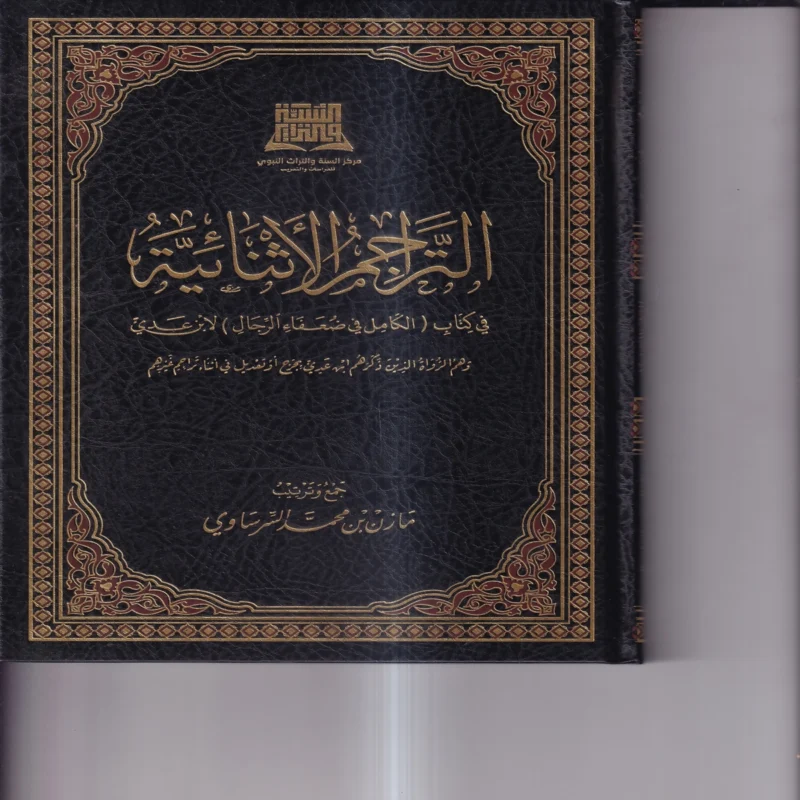 السنة
والتراث
مركز السنة والتراث النبوي
للدراسات والتدريب
التَّرَاجِمُ الأَثْنَائِيَّةُ
فِي كِتَابِ (الكَامِل فِي ضُعَفَاءِ الرِّجَالِ) لِابْنِ عَدِيّ
وَهُمُ الرُّوَاةُ الَّذِينَ ذَكَرَهُمُ ابْنُ عَدِيّ بِجَرْحٍ أَوْ تَعْدِيل فِي أَثْنَاءِ تَرَاجِمِ غَيْرِهِم
جَمْعُ وَتَرْتِيْبُ
مَازِن بْن مُحَمَّد السَّرسَاوِي